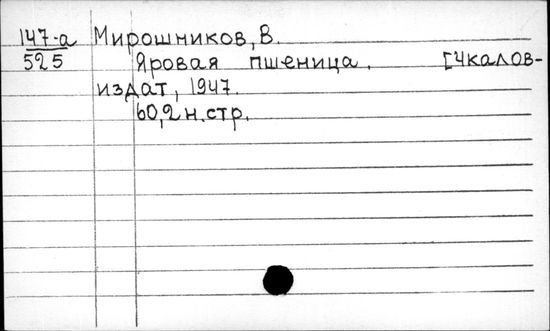 147-а Мирошников, В.
525 Яровая пшеница. [Чкалов-
издат, 1947.
60,2 н.стр.